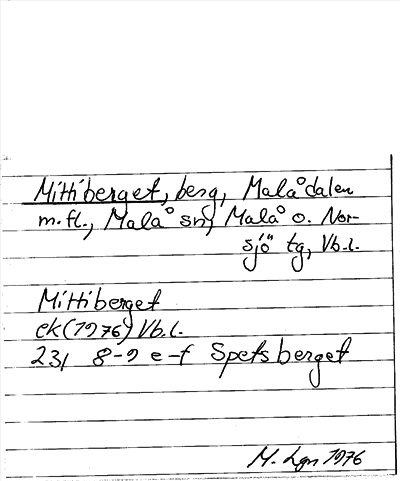 Mittiberget, berg, Malådalen
m.fl., Malå sn, Malå o. Nor-
sjö tg, Vb.l.
Mittiberget
ek (1976) Vb.l.
231 8-9 e-f Spetsberget
M. Lgn 1976